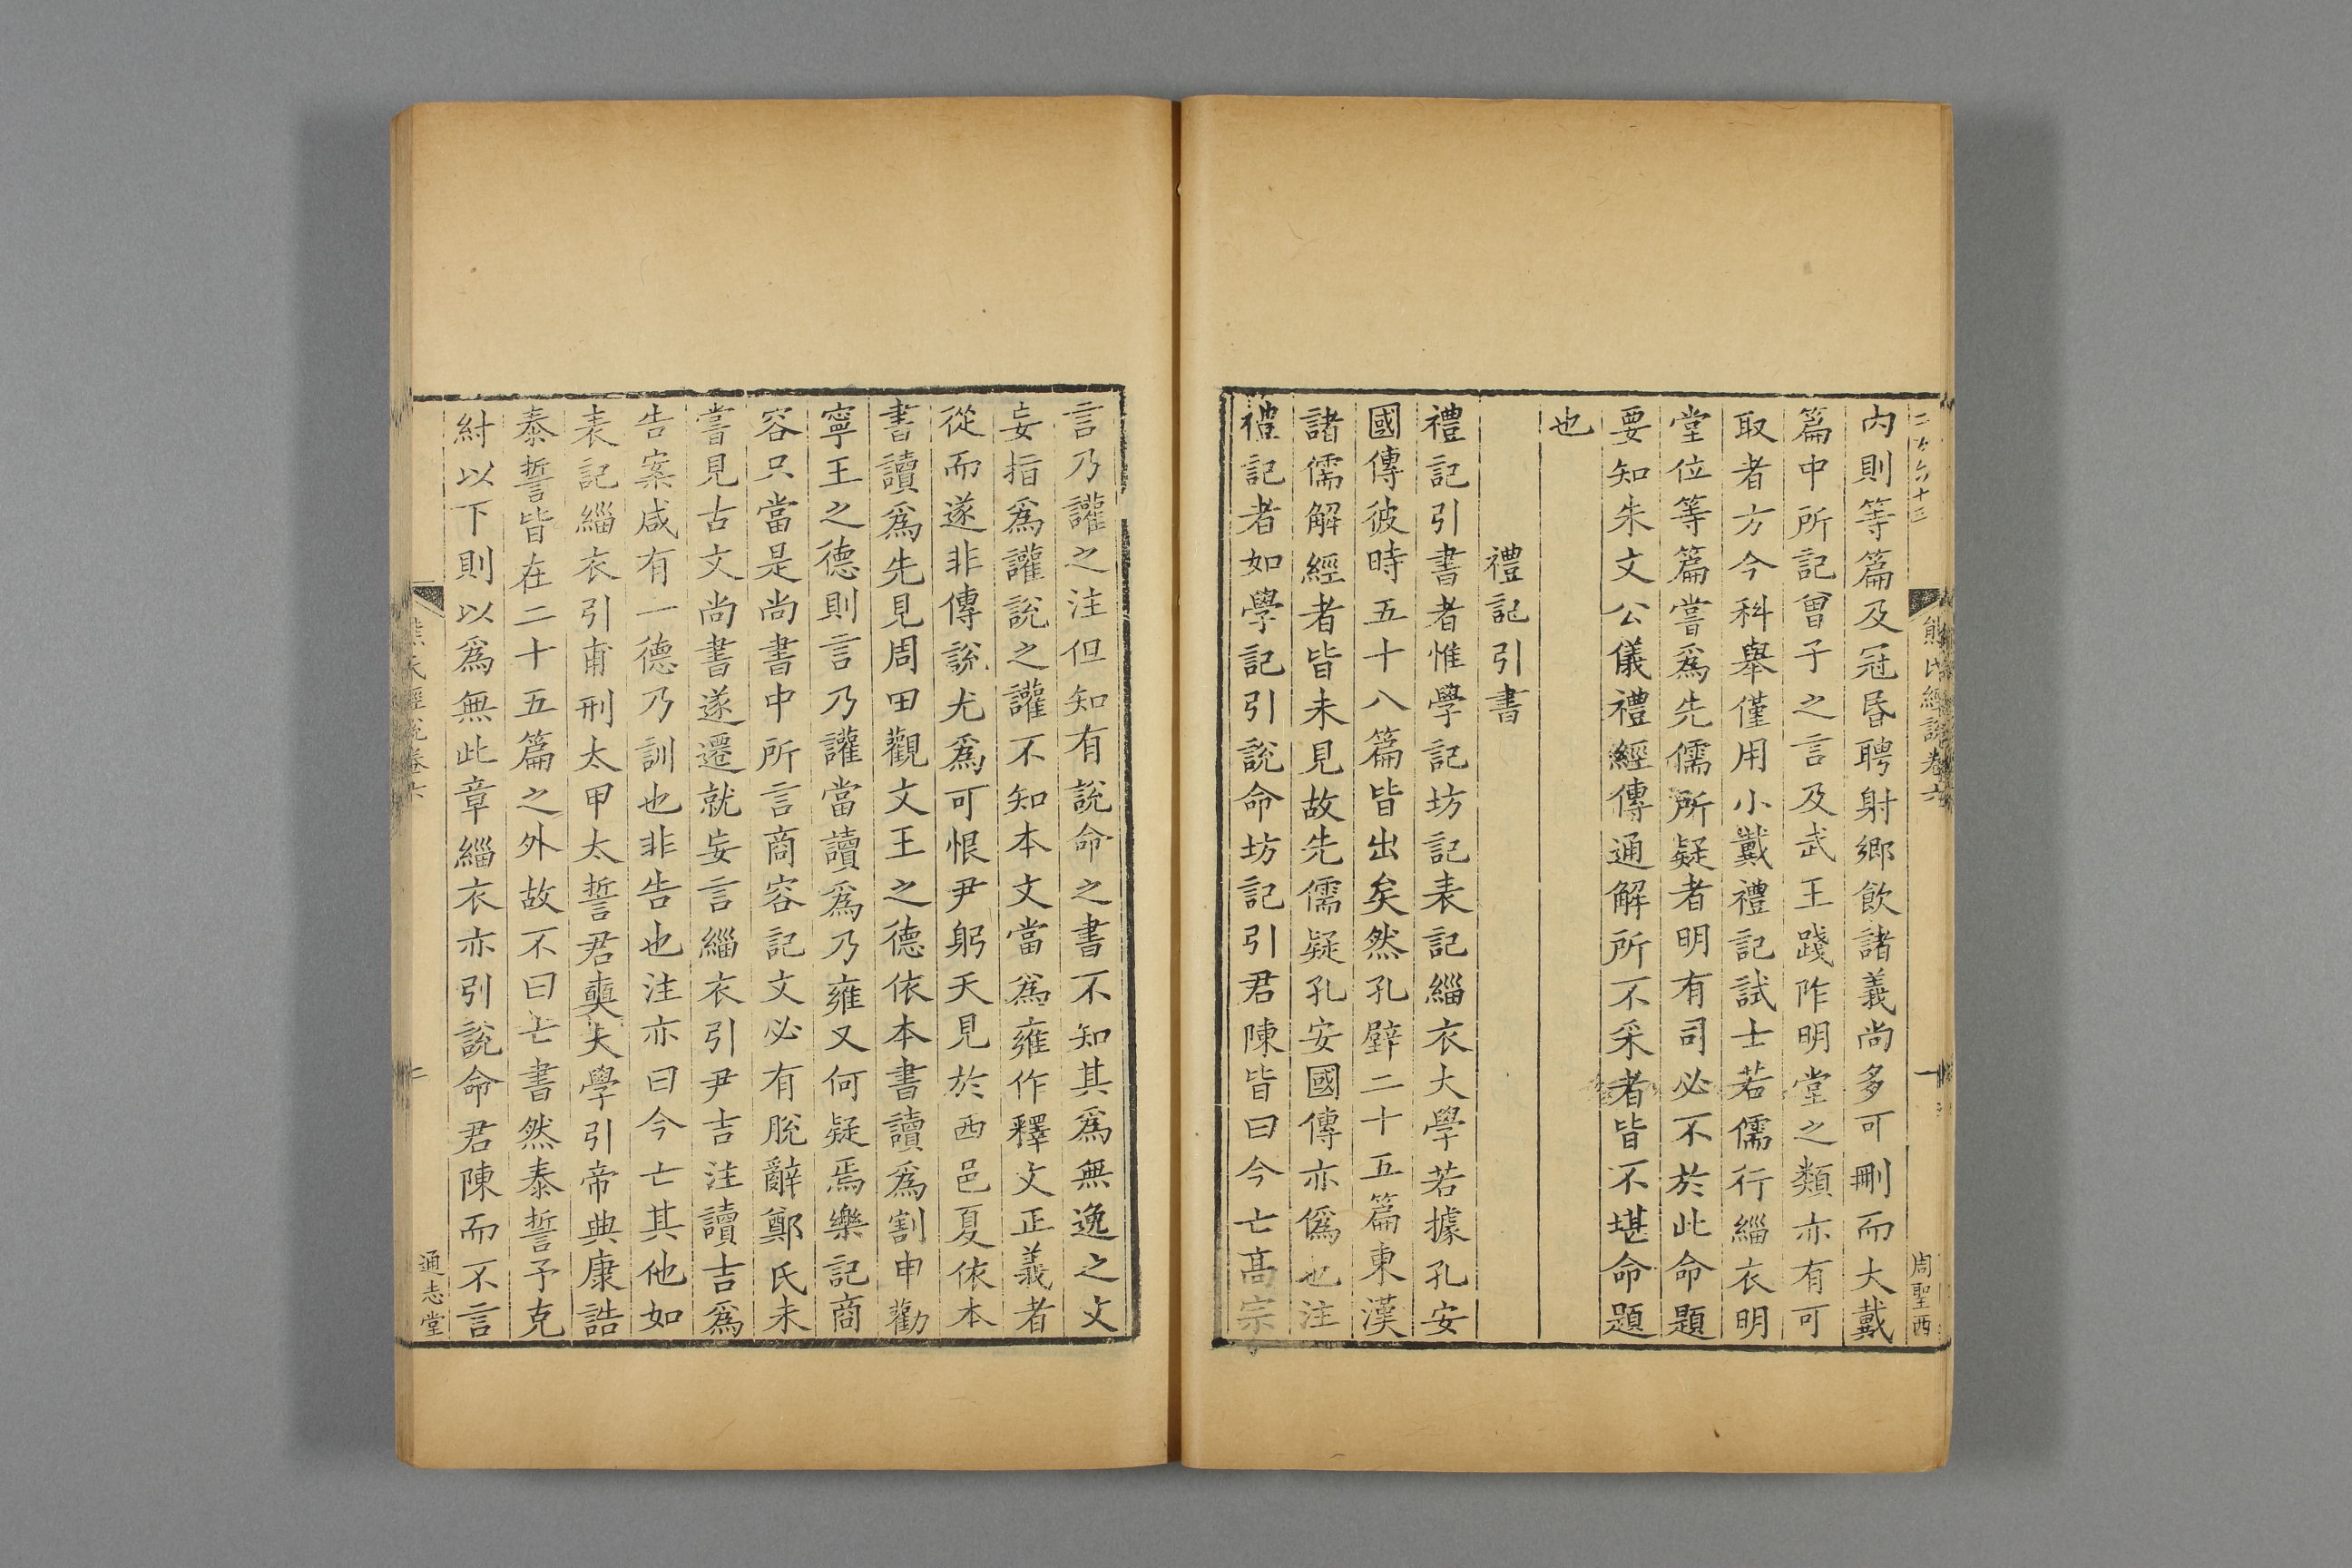 熊氏經說卷六
一
周聖西
內則等篇及冠昏聘射鄉飲諸義尚多可刪而大戴
篇中所記曾子之言及武王踐阼明堂之類亦有可
取者方今科舉僅用小戴禮記試士若儒行緇衣明
堂位等篇嘗爲先儒所疑者明有司必不於此命題
要知朱文公儀禮經傳通解所不采者皆不堪命題
也
禮記引書
禮記引書者惟學記坊記表記緇衣大學若據孔安
國傳彼時五十八篇皆出矣然孔壁二十五篇東漢
諸儒解經者皆未見故先儒疑孔安國傳亦僞也注
禮記者如學記引說命坊記引君陳皆曰今亡高宗
言乃讙之注但知有說命之書不知其爲無逸之文
妄指爲讙說之讙不知本文當爲雍作釋文正義者
從而遂非傳說尤爲可恨尹躬天見於西邑夏依本
書讀爲先見周田觀文王之德依本書讀爲割申勸
寧王之德則言乃讙當讀爲乃雍又何疑焉樂記商
容只當是尚書中所言商容記文必有脫辭鄭氏未
嘗見古文尚書遂遷就妄言緇衣引尹吉注讀吉爲
告案咸有一德乃訓也非告也注亦曰今亡其他如
表記緇衣引甫刑太甲太誓君奭大學引帝典康誥
泰誓皆在二十五篇之外故不曰亡書然泰誓予克
紂以下則以爲無此章緇衣亦引說命君陳而不言
熊氏經說卷六
二
通志堂